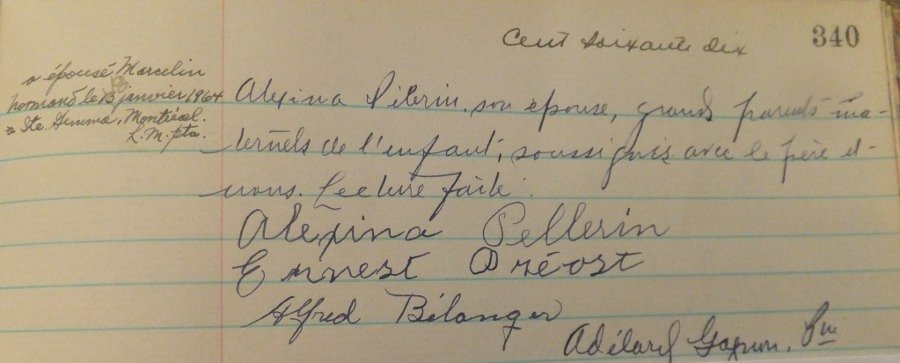 Cent soixante dix 340
a épousé Marcelin
Normand le 18 janvier 1964
a Ste. Gemma, Montréal.
L. M. ptre.
Alexina Pélerin son épouse, grands parents ma-
ternels de l'enfant, soussignés avec le père et
nous. Lecture faite.
Alexina Pellerin
Ernest Préost
Alfred Bélanger
Adélard